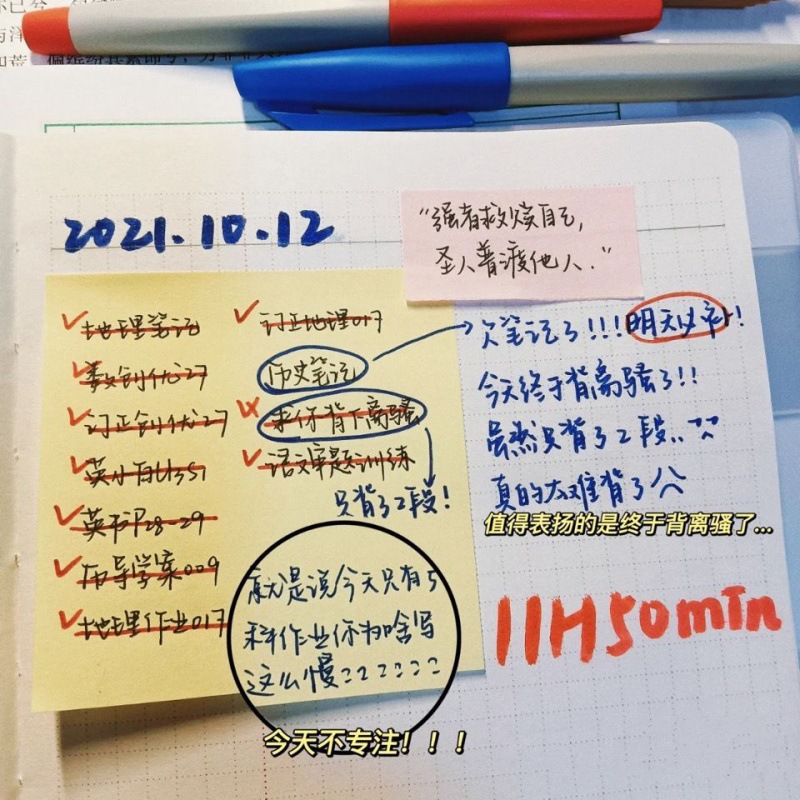 2021.10.12
"强者救赎自己,
圣人普渡他人."
地理笔记
数创优27
订正创优27
英书P28-29
历导学案009
地理作业017
订正地理017
历史笔记
求你背下离骚
语文审题训练
只背了2段!
欠笔记了!!!明天必补!
今天终于背离骚了!!
虽然只背了2段..
真的太难背了
值得表扬的是终于背离骚了...
11H50min
就是说今天只有5
科作业你为啥写
这么慢
今天不专注！！！